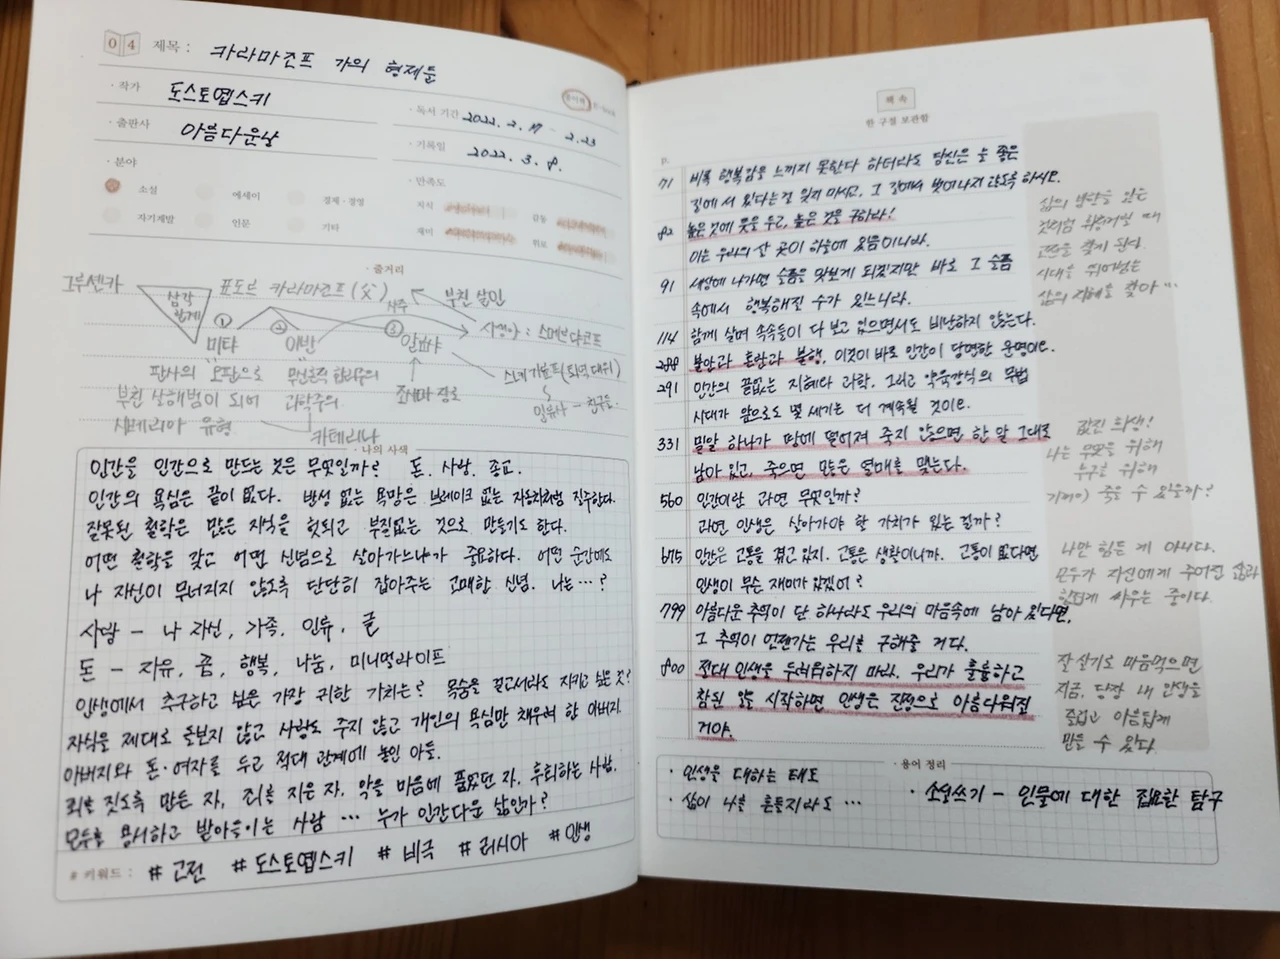 04 제목 : 카라마조프 가의 형제들
· 작가 도스토옙스키
· 독서 기간 2022. 2. 17 - 2.23
· 출판사 아름다운날
· 기록일 2022. 3. 8.
· 분야
소설 에세이 경제·경영
자기계발 인문 기타
· 만족도
지식 감동
재미 위로
· 줄거리
그루셴카 삼각관계 표도르 카라마조프(父) 부친 살인
① 미탸 ② 이반 ③ 알료샤 사생아 : 스메르쟈코프
판사의 오판으로
부친 살해범이 되어
시베리아 유형
무신론적 합리주의
과학주의
카테리나
조시마 장로
스네기료프(퇴역 대위)
일류샤 - 친구들
· 나의 사색
인간을 인간으로 만드는 것은 무엇일까? 돈. 사랑. 종교.
인간의 욕심은 끝이 없다. 반성 없는 욕망은 브레이크 없는 자동차처럼 질주한다.
잘못된 철학은 많은 지식을 헛되고 부질없는 것으로 만들기도 한다.
어떤 철학을 갖고 어떤 신념으로 살아가느냐가 중요하다. 어떤 순간에도
나 자신이 무너지지 않도록 단단히 잡아주는 고매한 신념. 나는…?
사랑 - 나 자신, 가족, 인류, 글
돈 - 자유, 꿈, 행복, 나눔, 미니멀라이프
인생에서 추구하고 싶은 가장 귀한 가치는? 목숨을 걸고서라도 지키고 싶은 것?
자식을 제대로 돌보지 않고 사랑도 주지 않고 개인의 욕심만 채우려 한 아버지.
아버지와 돈·여자를 두고 적대 관계에 놓인 아들.
죄를 짓도록 만든 자, 죄를 지은 자. 악을 마음에 품었던 자. 후회하는 사람.
모두를 용서하고 받아들이는 사람 … 누가 인간다운 삶인가?
# 키워드 : # 고전 # 도스토옙스키 # 비극 # 러시아 # 인생
책 속
한 구절 보관함
p.
71 비록 행복감을 느끼지 못한다 하더라도 당신은 늘 좋은
길에 서 있다는 걸 잊지 마시고, 그 길에서 벗어나지 않도록 하시오.
82 높은 것에 뜻을 두고, 높은 것을 구하라!
이는 우리의 산 곳이 하늘에 있음이니라.
91 세상에 나가면 슬픔을 맛보게 되겠지만 바로 그 슬픔
속에서 행복해질 수가 있느니라.
114 함께 살며 속속들이 다 보고 있으면서도 비난하지 않는다.
288 불안과 혼란과 불행, 이것이 바로 인간이 당면한 운명이오.
291 인간의 끝없는 지혜와 과학, 그리고 약육강식의 무법
시대가 앞으로도 몇 세기는 더 계속될 것이오.
331 밀알 하나가 땅에 떨어져 죽지 않으면 한 알 그대로
남아 있고, 죽으면 많은 열매를 맺는다.
560 인간이란 과연 무엇일까?
과연 인생은 살아가야 할 가치가 있는 걸까?
675 인간은 고통을 겪고 있지. 고통은 생활이니까. 고통이 없다면
인생이 무슨 재미가 있겠어?
799 아름다운 추억이 단 하나라도 우리의 마음속에 남아 있다면,
그 추억이 언젠가는 우리를 구해줄 거다.
800 절대 인생을 두려워하지 마라. 우리가 훌륭하고
참된 일을 시작하면 인생은 진정으로 아름다워질
거야.
삶의 방향을 잃은
것처럼 휘청거릴 때
고전을 찾게 된다.
시대를 뛰어넘는
삶의 지혜를 찾아…
값진 희생!
나는 무엇을 위해
누구를 위해
기꺼이 죽을 수 있을까?
나만 힘든 게 아니다.
모두가 자신에게 주어진 삶과
힘겹게 싸우는 중이다.
잘 살기로 마음먹으면
지금, 당장 내 인생을
즐겁고 아름답게
만들 수 있다.
· 용어 정리
· 인생을 대하는 태도
· 삶이 나를 흔들지라도 …
· 소설쓰기 - 인물에 대한 집요한 탐구